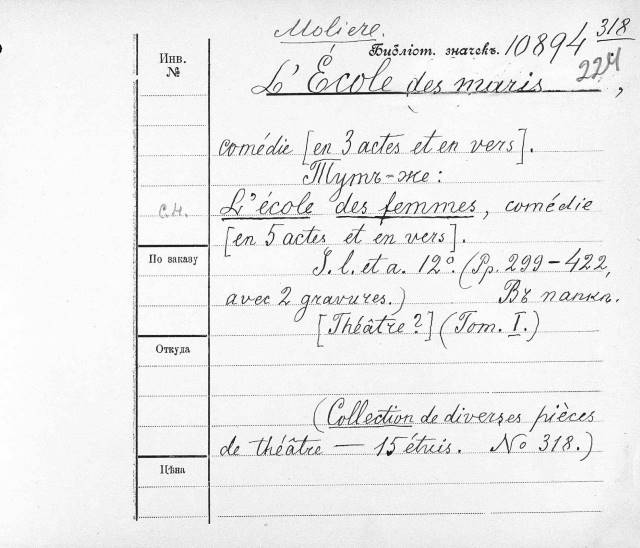 Moliere.
318
Библіот. значекъ. 10894
224
Инв.
№
L'École des maris,
comédie [en 3 actes et en vers].
Тутъ-же:
с.н.
L'école des femmes, comédie
[en 5 actes et en vers].
По заказу
S. l. et a. 12º. (Pp. 299-422,
avec 2 gravures.) Въ папкѣ.
[Théâtre?] (Tom. I.)
Откуда
(Collection de diverses pièces
de théâtre — 15 étuis. No 318.)
Цѣна